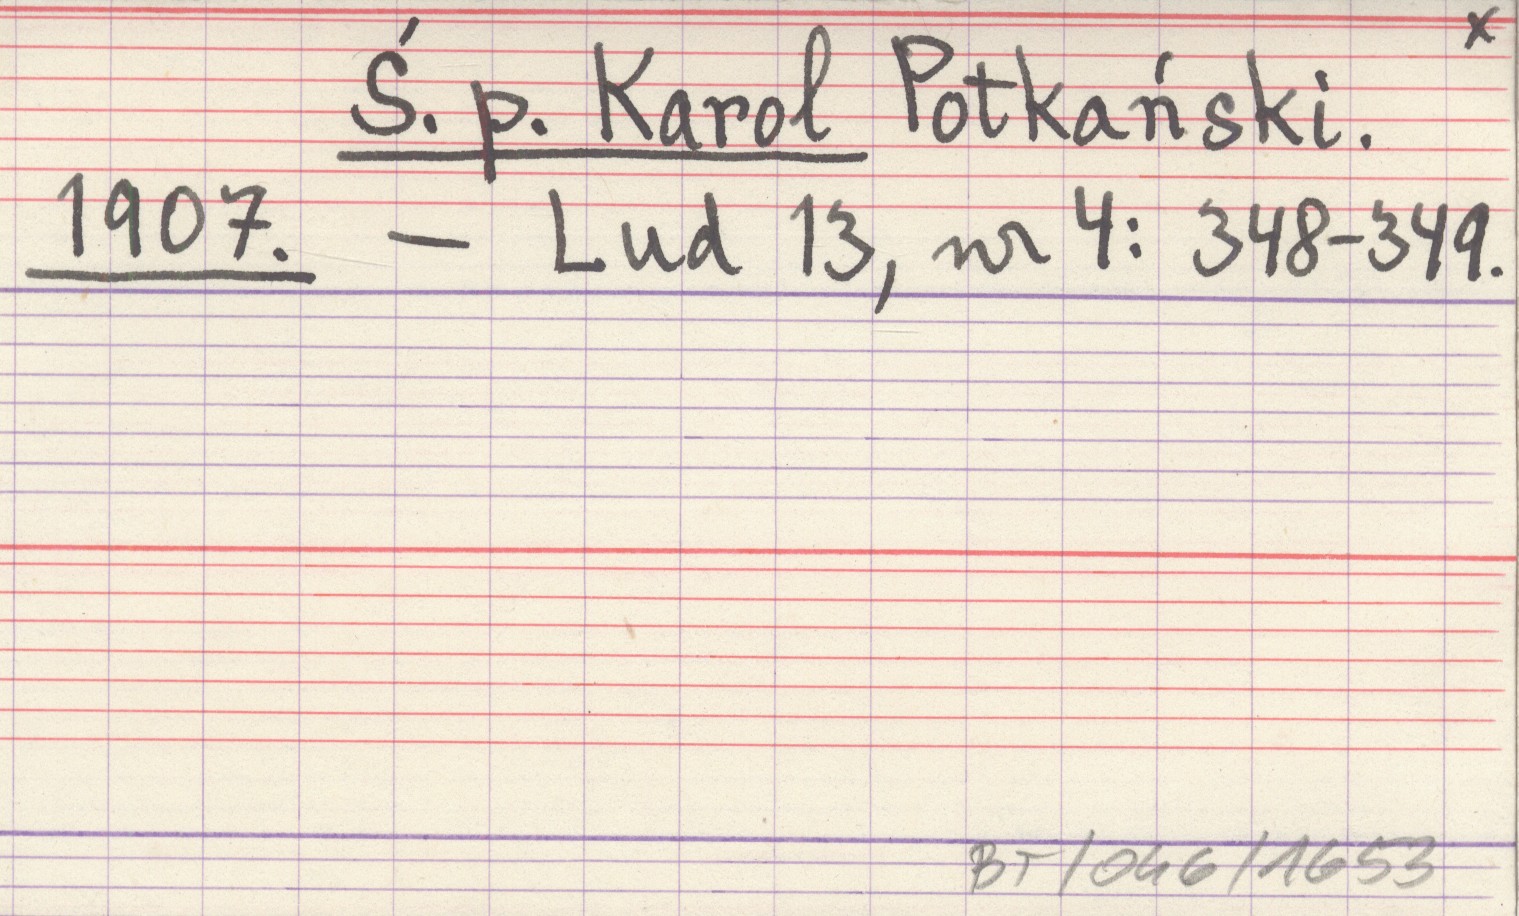 x
Ś. p. Karol Potkański.
1907. — Lud 13, nr 4: 348-349.
BT/046/1653